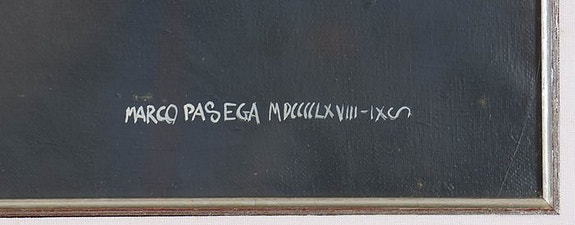 MARCO PASEGA MDCCCCLXVIII-IXS